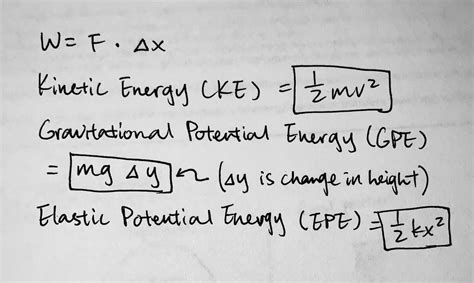 W = F · Δx
Kinetic Energy (KE) = ½mv²
Gravitational Potential Energy (GPE)
= mg Δy (Δy is change in height)
Elastic Potential Energy (EPE) = ½kx²